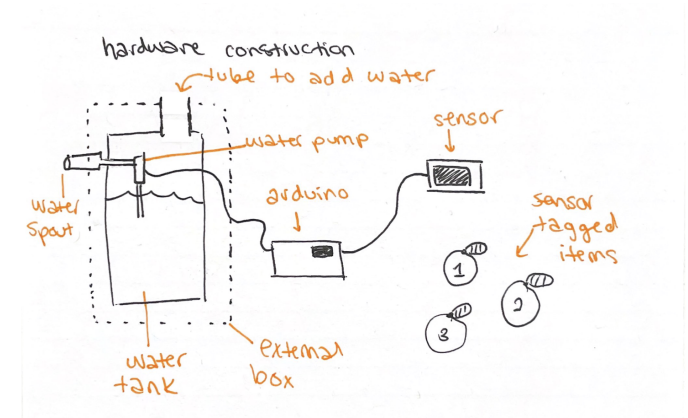 hardware construction
tube to add water
sensor
water pump
arduino
water
spout
sensor
tagged
items
1
2
3
water
tank
external
box